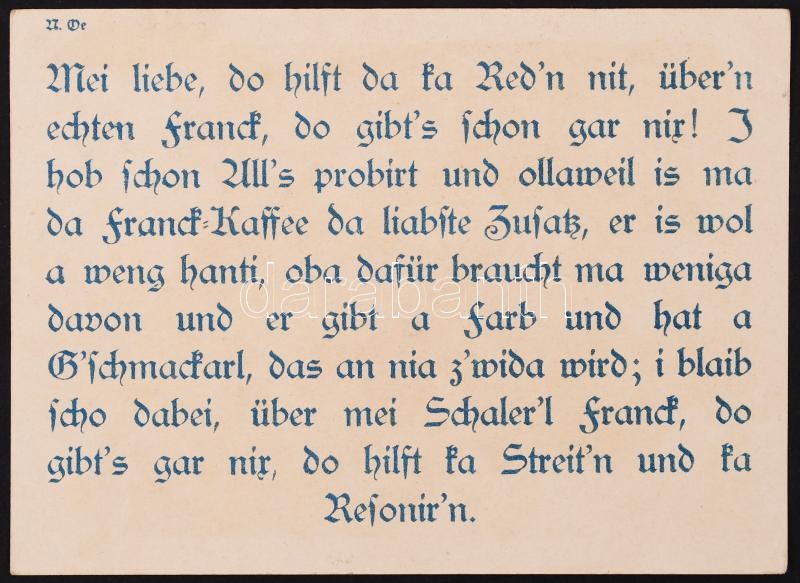 N. Oe
Mei liebe, do hilft da ka Red'n nit, über'n
echten Franck, do gibt's schon gar nix! I
hob schon All's probirt und ollaweil is ma
da Franck-Kaffee da liabste Zusatz, er is wol
a weng hanti, oba dafür braucht ma weniga
davon und er gibt a Farb und hat a
G'schmackarl, das an nia z'wida wird; i blaib
scho dabei, über mei Schaler'l Franck, do
gibt's gar nix, do hilft ka Streit'n und ka
Resonir'n.
darabanth